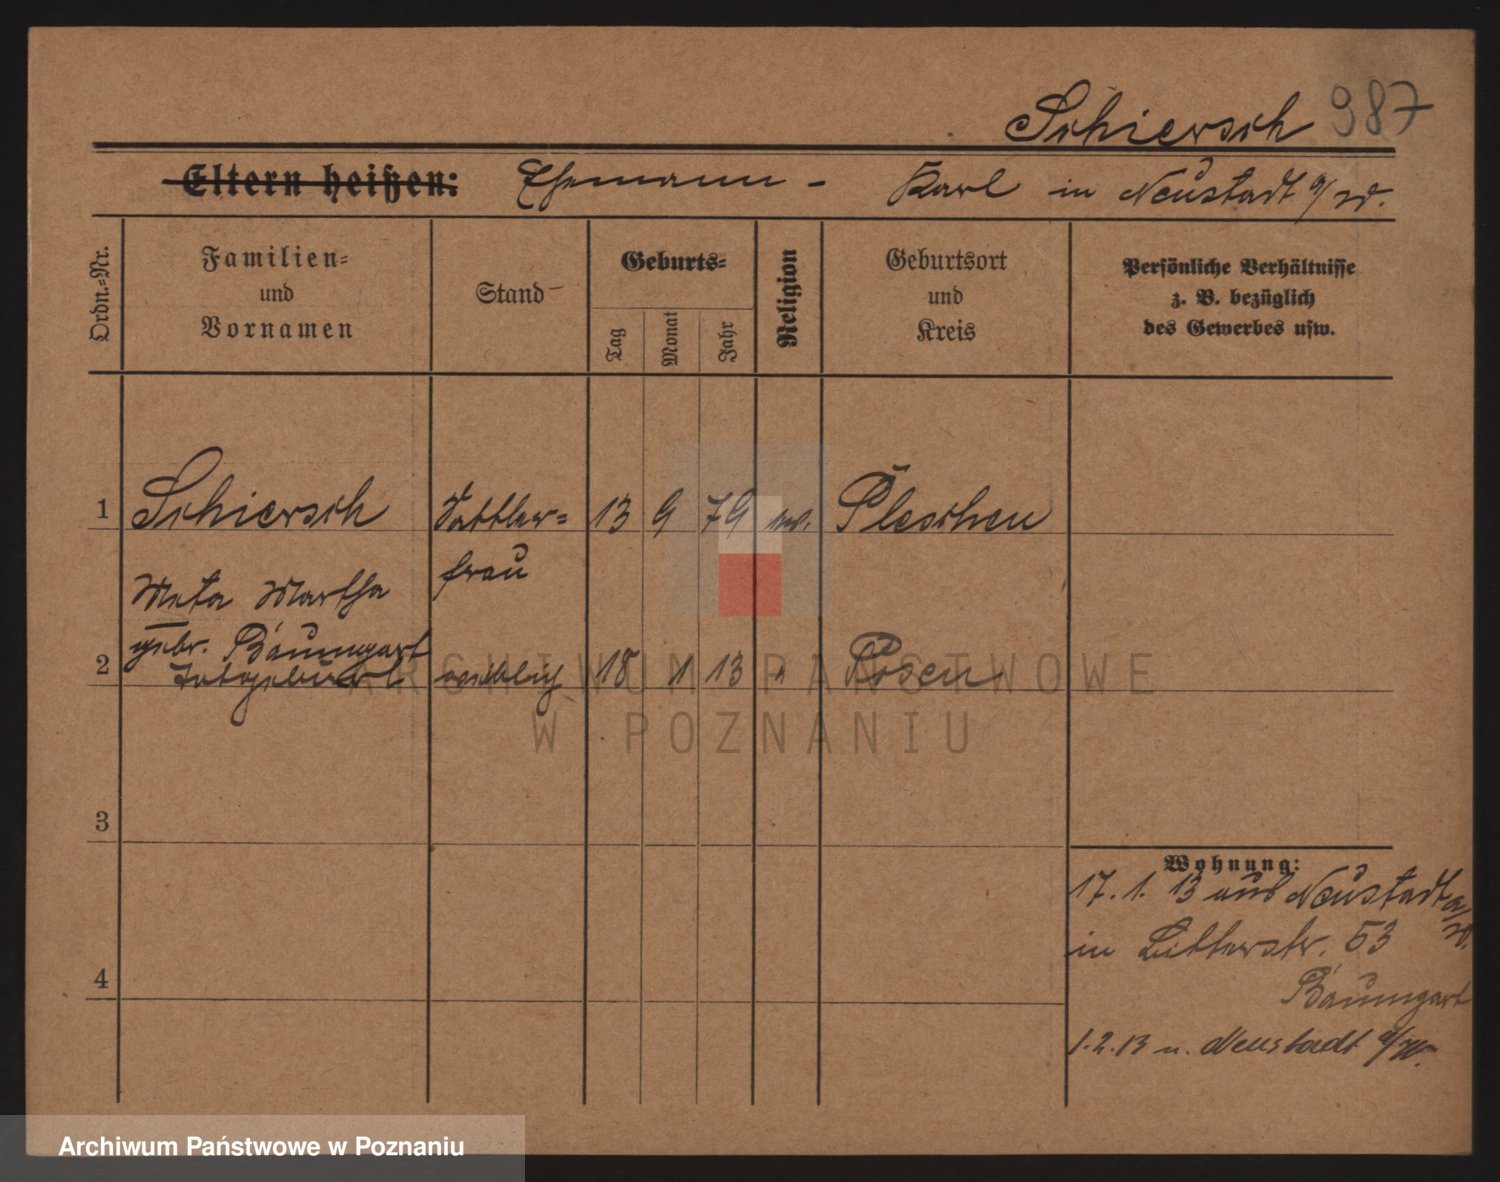 Schiersch 987
Eltern heißen: Ehemann - Karl in Neustadt a/W.
Ordn.-Nr.
Familien-
und
Vornamen
Stand
Geburts-
Tag
Monat
Jahr
Religion
Geburtsort
und
Kreis
Persönliche Verhältnisse
z. B. bezüglich
des Gewerbes usw.
1 Schiersch Sattler- 13 9 79 ev. Pleschen
frau
Meta Martha
gebr. Baumgart
2 Totgeburt weiblich 18 1 13 " Posen
3
4
Wohnung:
17. 1. 13 aus Neustadt a/W.
in 53
Baumgart
1. 2. 13 n. Neustadt a/W.
ARCHIWUM PAŃSTWOWE
W POZNANIU
Archiwum Państwowe w Poznaniu